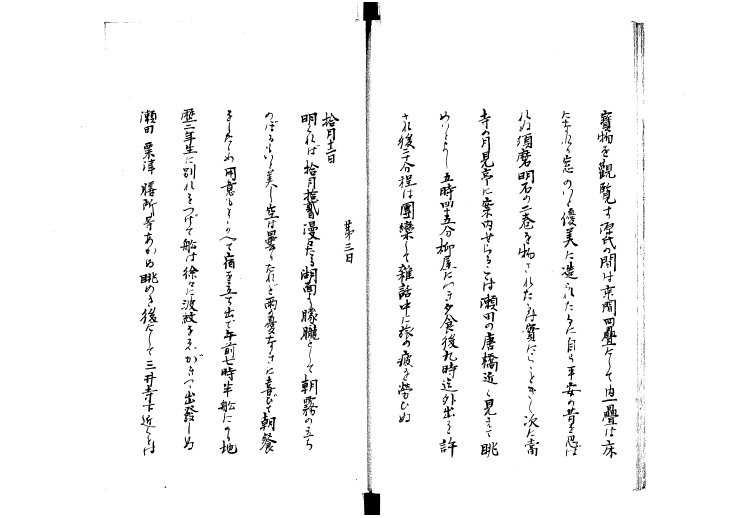 寳物を観覧す源氏の間は京間四疊にして内一疊は床
になれり窓のつくり優美に造られたるに自ら平安の昔を忍ば
れぬ須磨明石の二巻を物されたるは實にこゝときく次に當
寺の月見亭に案内せらるこゝは瀬田の唐橋近く見えて眺
めよし五時四五分柳屋につき夕食後九時迄外出を許
され後二十分程は團欒して雑話中に旅の疲を労ひぬ
第三日
拾月十二日
明くれば拾月拾貳日漫々たる湖南も朦朧として朝霧の立ち
のぼるいと美し空は曇りたれど雨の憂なきに喜びて朝餐
をしたゝめ用意もそこそこへて宿を立ち出で午前七時半船にのる地
歴二年生に別れをつげて船は徐々に波紋をゑがきつゝ出發しぬ
瀬田 粟津 膳所等あかぬ眺めを後にして三井寺下近くをは